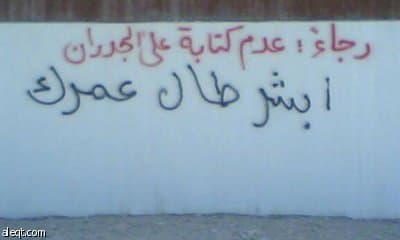 رجاءً : عدم كتابة على الجدران
ابشر طال عمرك
aleqt.com